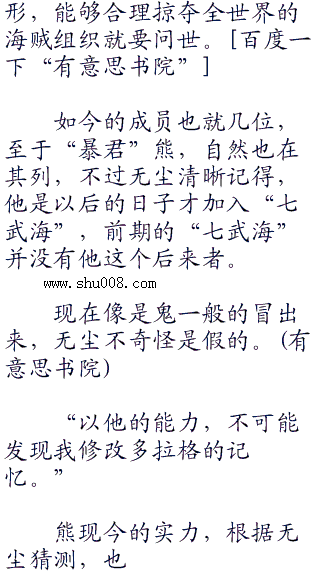 形，能够合理掠夺全世界的
海贼组织就要问世。[百度一
下“有意思书院”]
如今的成员也就几位，
至于“暴君”熊，自然也在
其列，不过无尘清晰记得，
他是以后的日子才加入“七
武海”，前期的“七武海”
并没有他这个后来者。
www.shu008.com
现在像是鬼一般的冒出
来，无尘不奇怪是假的。(有
意思书院)
“以他的能力，不可能
发现我修改多拉格的记
忆。”
熊现今的实力，根据无
尘猜测，也